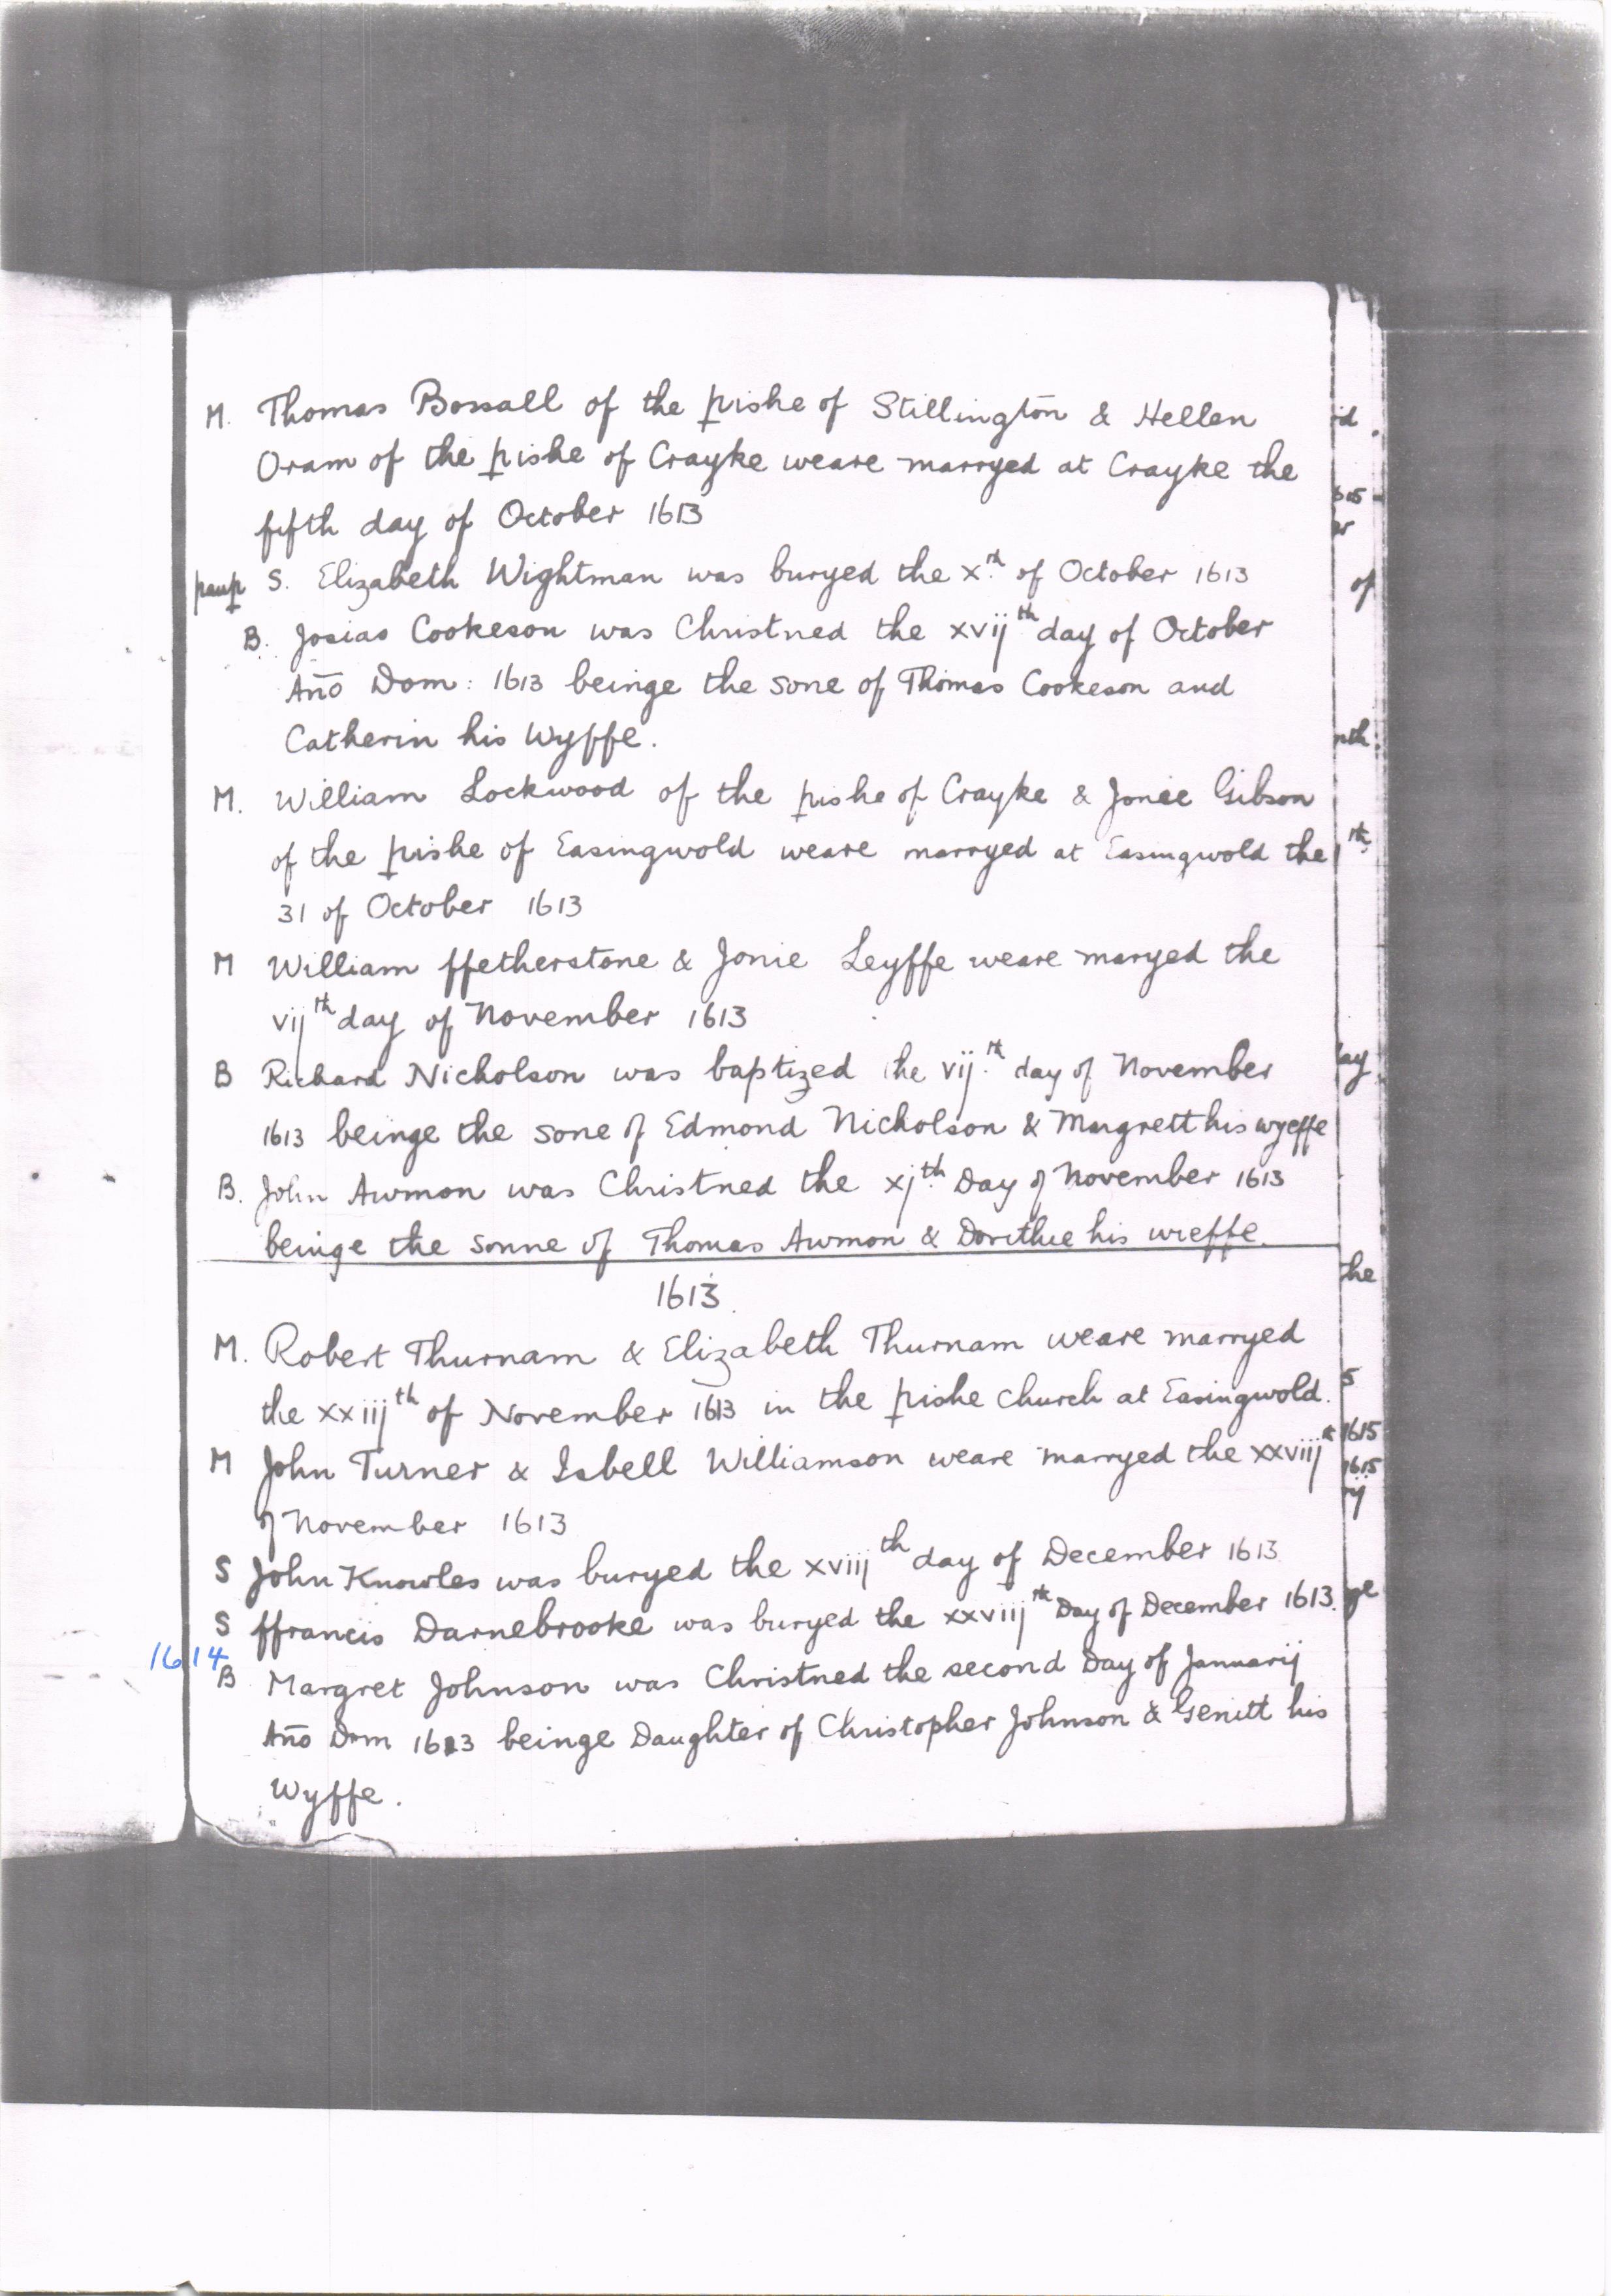 M. Thomas Bossall of the pishe of Stillington & Hellen
Oram of the pishe of Crayke weare marryed at Crayke the
fifth day of October 1613
paup S. Elizabeth Wightman was buryed the xth of October 1613
B. Josias Cookeson was Christned the xvijth day of October
Año Dom: 1613 beinge the sone of Thomas Cookeson and
Catherin his Wyffe.
M. William Lockwood of the pishe of Crayke & Jonee Gibson
of the pishe of Easingwold weare marryed at Easingwold the
31 of October 1613
M William ffetherstone & Jonie Leyffe weare maryed the
vijth day of November 1613
B Richard Nicholson was baptized the vij.th day of November
1613 beinge the sone of Edmond Nicholson & Margrett his wyeffe
B. John Awmon was Christned the xj.th Day of November 1613
beinge the sonne of Thomas Awmon & Dorithie his wieffe.
1613
M. Robert Thurnam & Elizabeth Thurnam weare marryed
the xxiijth of November 1613 in the pishe church at Easingwold.
M John Turner & Isbell Williamson weare marryed the xxviijth
of November 1613
S John Knowles was buryed the xviijth day of December 1613
S ffrancis Darnebrooke was buryed the xxviijth Day of December 1613.
1614
B Margret Johnson was Christned the second Day of Januarij
Año Dom 1613 beinge Daughter of Christopher Johnson & Genitt his
Wyffe.